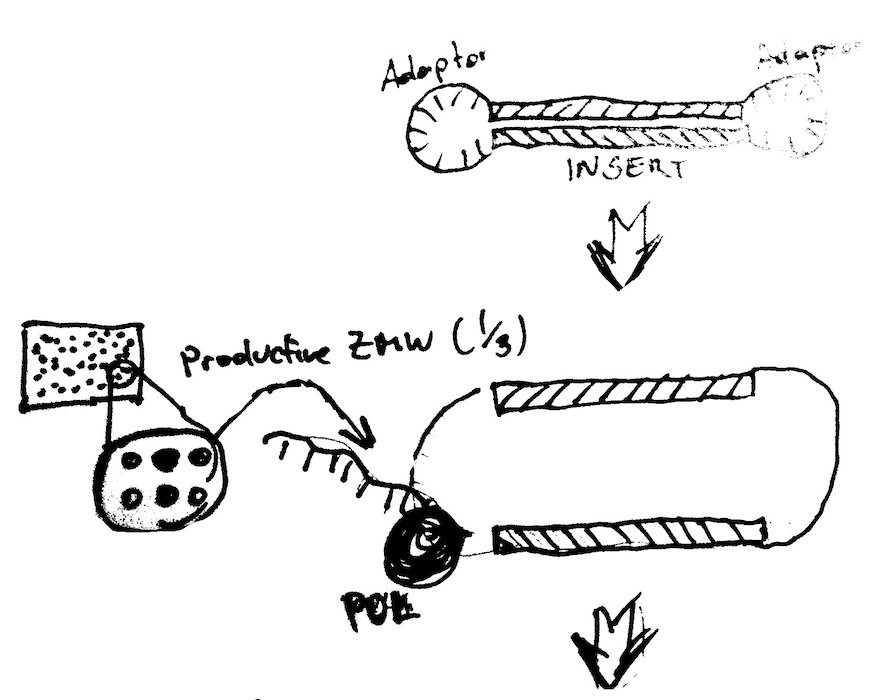 Adaptor
Adaptor
INSERT
Productive ZMW (1/3)
POL